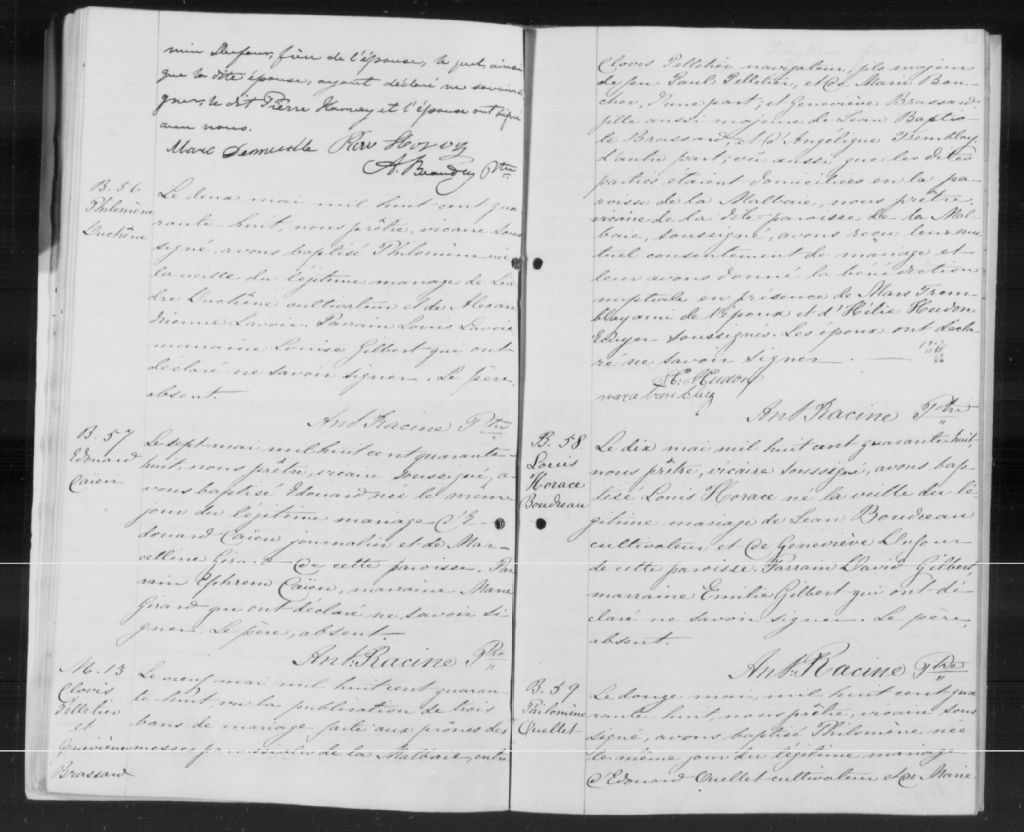 min Dufour, frère de l'épouse, lequel, ainsi
que la dite épouse, ayant déclaré ne savoir si-
gner, le dit Pierre Harvey et l'épouse ont signé
avec nous.
Marc
A. Beaudry Ptre
B. 56
Philomène
Duchêne
Le deux mai mil huit cent qua
rante-huit, nous prêtre, vicaire sous
signé, avons baptisé Philomène née
la veille du légitime mariage de Léa
dre Duchêne cultivateur et de Alexan
drienne Lavoie. Parrain Louis Lavoie
marraine Louise Gilbert qui ont
déclaré ne savoir signer. Le père,
absent.
Ant. Racine Ptre
B. 57
Edouard
Caïen
Le sept mai mil huit cent quarante
huit, nous prêtre, vicaire soussigné, a
vons baptisé Edouard née le même
jour du légitime mariage d'E-
douard Caïen journalier et de Mar-
celline Girard de cette paroisse. Par
rain Ephrem Caïen, marraine Marie
Girard qui ont déclaré ne savoir si
gner. Le père, absent.
Ant. Racine Ptre
M. 13
Clovis
Pelletier
et
Geneviève
Brassard
Le neuf mai mil huit cent quaran
te-huit, vu la publication de trois
bans de mariage faite aux prônes des
messes paroissiales de la Malbaie, entre
Clovis Pelletier navigateur, fils majeur
de feu Paul Pelletier, et de Marie Bou-
cher, d'une part; et Geneviève Brassard
fille aussi majeure de Jean Baptis
te Brassard, et d'Angélique Tremblay
d'autre part; vu aussi que les dites
parties étaient domiciliées en la pa-
roisse de la Malbaie, nous prêtre,
vicaire de la dite paroisse de la Mal-
baie, soussigné, avons reçu leur mu
tuel consentement de mariage et
leur avons donné la bénédiction
nuptiale en présence de Mars Trem-
blay ami de l'époux et d'Hélie Hudon
Ecuyer soussignés. Les époux ont décla-
ré ne savoir signer.
H. Hudon
Ant. Racine Ptre
B. 58
Louis
Horace
Boudreau
Le dix mai mil huit cent quarante huit,
nous prêtre, vicaire soussigné, avons bap
tisé Louis Horace né la veille du lé
gitime mariage de Jean Boudreau
cultivateur et de Geneviève Dufour
de cette paroisse. Parrain David Gilbert,
marraine Emilie Gilbert qui ont dé-
claré ne savoir signer. Le père,
absent.
Ant. Racine Ptre
B. 59
Philomène
Ouellet
Le douze mai, mil huit cent qua
rante huit, nous prêtre, vicaire sous
signé, avons baptisé Philomène née
le même jour du légitime mariage
d'Edouard Ouellet cultivateur et de Marie